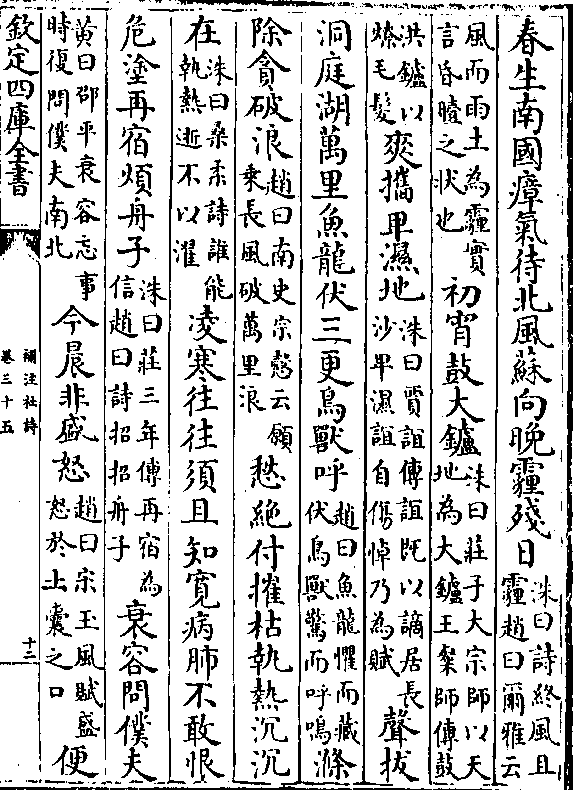 春生南國瘴氣待北風蘇向晚霾殘日洙曰詩終風且霾趙曰爾雅云
風而雨土為霾實言昏曀之狀也初宵鼓大鑪洙曰莊子大宗師以天地為大鑪王粲師傳鼓
洪鑪以燎毛髮爽攜卑濕地洙曰賈誼傳誼既以謫居長沙卑濕誼自傷悼乃為賦聲拔
洞庭湖萬里魚龍伏三更鳥獸呼趙曰魚龍懼而藏伏鳥獸驚而呼鳴滌
除貪破浪趙曰南史宗慤云願乘長風破萬里浪愁絶付摧枯執熱沉沉
在洙曰桑柔詩誰能執熱逝不以濯凌寒往往須且知寛病肺不敢恨
危塗再宿煩舟子洙曰莊三年傳再宿為信趙曰詩招招舟子衰容問僕夫
黄曰邵平衰容忘事時復問僕夫南北今晨非盛怒趙曰宋玉風賦盛怒於土囊之口便
欽定四庫全書
補注杜詩
卷三十五
十二